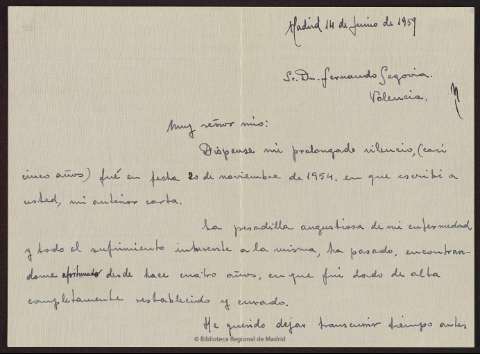 Madrid 14 de Junio de 1959
Sr. Dn. Fernando Segovia.
Valencia.
Muy señor mio:
Dispense mi prolongado silencio, (casi
cinco años) fué en fecha 20 de noviembre de 1954, en que escribí a
usted, mi anterior carta.
La pesadilla angustiosa de mi enfermedad
y todo el sufrimiento inherente a la misma, ha pasado, encontran-
dome desde hace cuatro años, en que fuí dado de alta
completamente restablecido y curado.
He querido dejar transcurrir tiempo antes
© Biblioteca Regional de Madrid